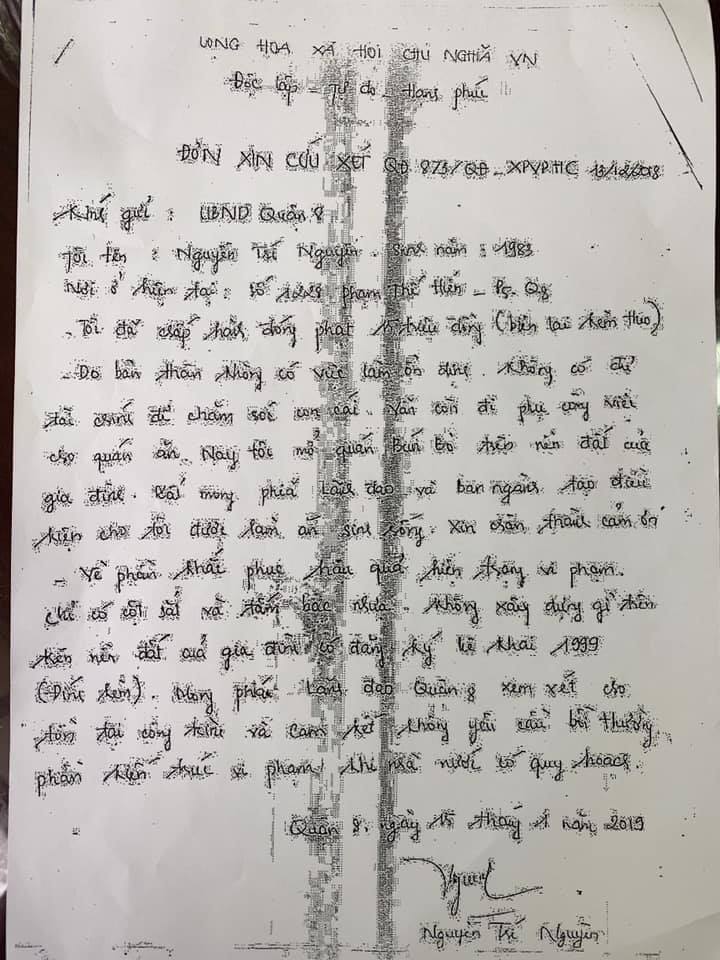 CONG HOA XÃ HOI CHU NGHĨA VN
Độc lập - Tự do - Hanh phúc
ĐƠN XIN CỨU XÉT QĐ 873/QĐ-XPVPHC 13/12/2018
Kính gửi : UBND Quận 8
Tôi tên : Nguyễn Trí Nguyện. Sinh năm : 1983
Nơi ở hiện tại : Số Phạm Thế Hiển - Q8
- Tôi đã chấp hành đóng phạt 15 triệu đồng (biên lai kèm theo)
- Do bản thân không có việc làm ổn định. Không có đủ
tài chính để chăm sóc con cái. Vẫn còn đi phụ công việc
cho quán ăn. Nay tôi mở quán Bún bò trên nền đất của
gia đình. Rất mong phía lãnh đạo và ban ngành tạo điều
kiện cho tôi được làm ăn sinh sống. Xin chân thành cảm ơn
- Về phần khắc phục hậu quả hiện trạng vi phạm.
Chỉ có cột sắt và tấm bạc nhựa. Không xây dựng gì thêm
trên nền đất của gia đình có đăng ký kê khai 1999
(Đính kèm). Mong phía lãnh đạo Quận 8 xem xét cho
tồn tại công trình và cam kết không yêu cầu bồi thường
phần kiến trúc vi phạm khi nhà nước có quy hoạch.
Quận 8, ngày 15 tháng 1 năm 2019
Nguyễn Trí Nguyện